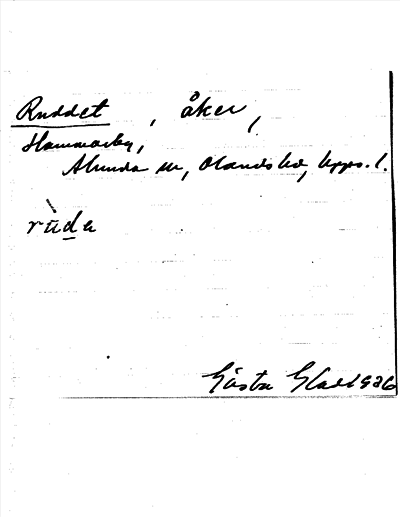 Ruddet , åker,
Hammarby,
Alunda sn, Olands hd, Upps. l.
rùda
Gösta Glad 1926